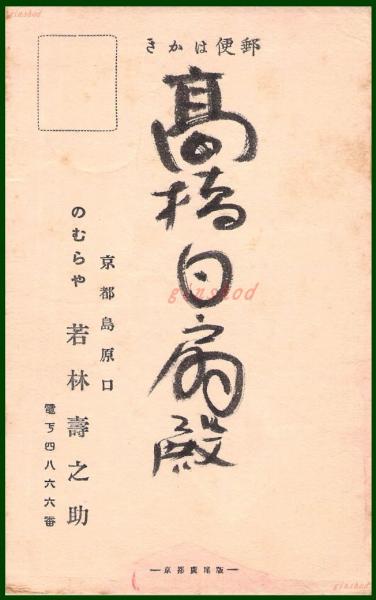 ginshod
郵便はかき
高橋白扇殿
ginshod
京都島原口
のむらや 若林壽之助
電下四八六六番
―京都廣尾版―
ginshod